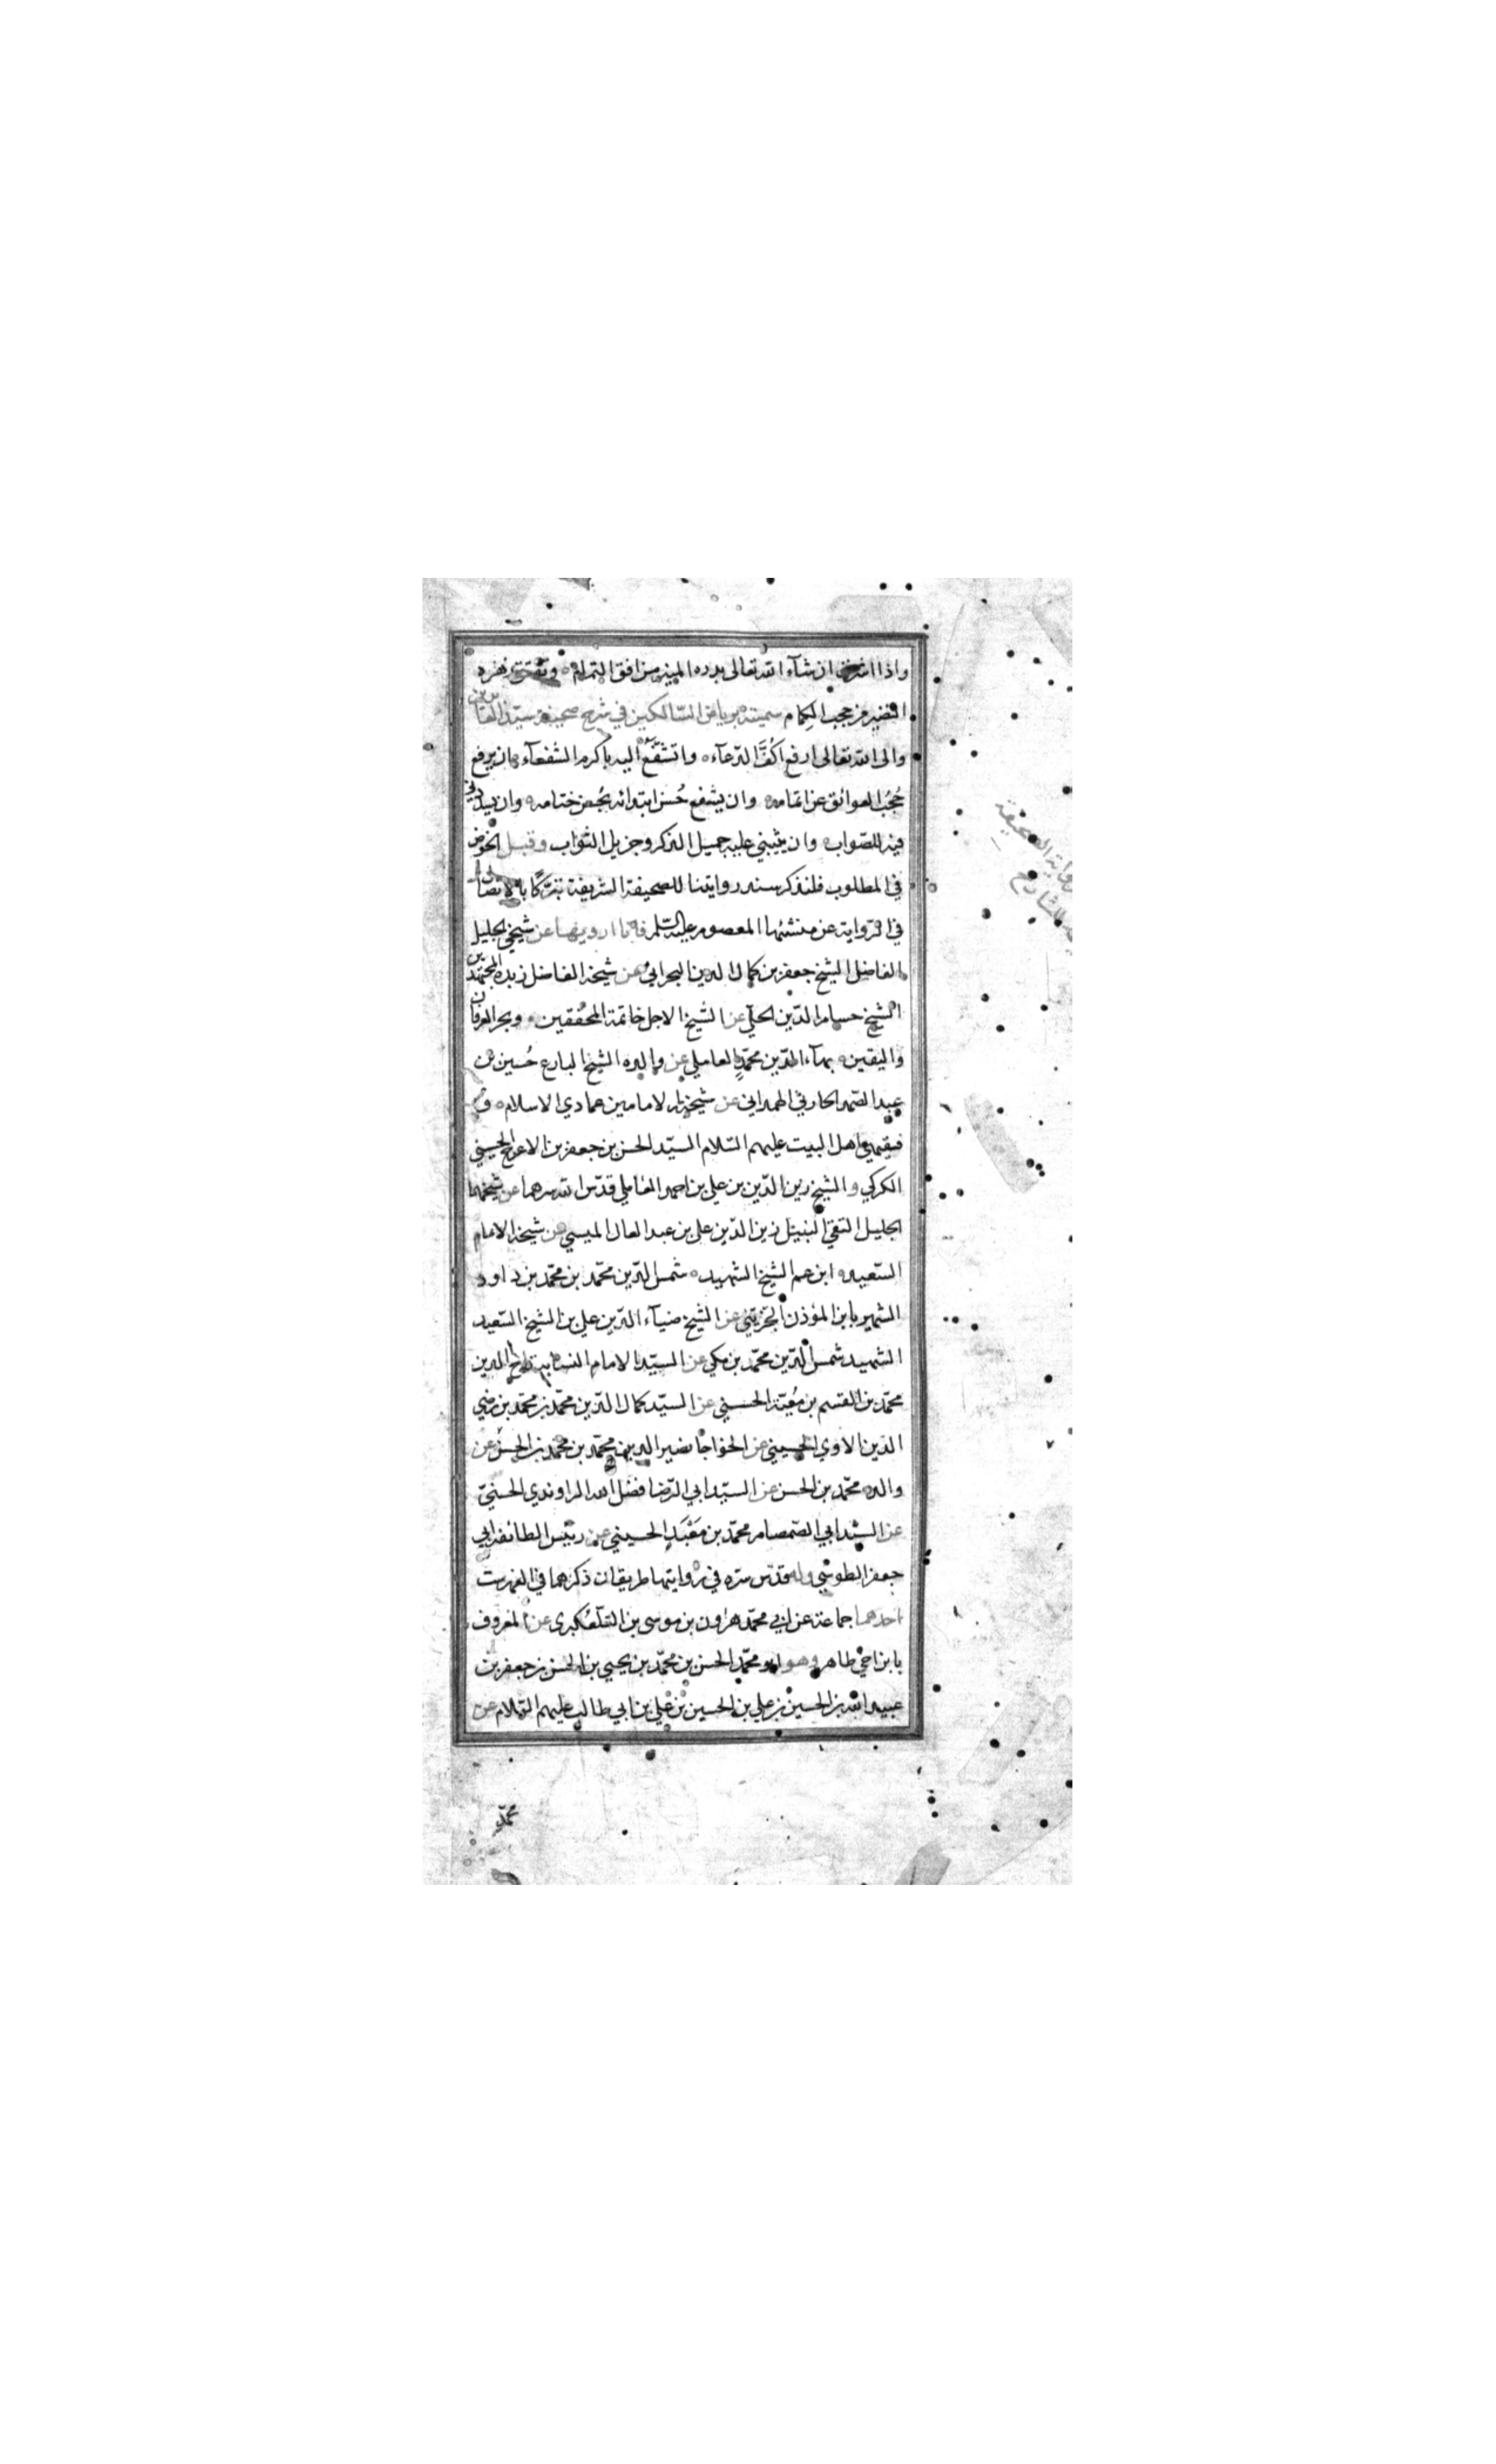 واذا اشرق ان شآء الله تعالى بدره المنير من افق التمام وتفتق زهره
النضير من حجب الكمام سميته برياض السالكين في شرح صحيفة سيد العابدين
والى الله تعالى ارفع اكُفَّ الدعآء واتشفَّع اليه باكرم الشفعآء ان يرفع
حُجُب العوائق عن اتمامه وان يشفع حُسن ابتدائه بحُسن ختامه وان يسددني
فيه للصواب وان يثيبني عليه جميل الذكر وجزيل الثواب وقبل الخوض
في المطلوب فلنذكر سند روايتنا للصحيفة الشريفة تبرّكًا بالاتصال
في الرواية عن منشئها المعصوم عليه السّلم فانا ارويها عن شيخي الجليل
الفاضل الشيخ جعفر بن كمال الدين البحراني عن شيخه الفاضل زبدة المجتهدين
الشيخ حسام الدّين الحلي عن الشيخ الاجل خاتمة المحققين وبحر العرفان
واليقين بهآء الدّين محمّد العاملي عن والده الشيخ البارع حُسين بن
عبد الصّمد الحارثي الهمداني عن شيخيه الامامين عمادي الاسلام و
فقيهي اهل البيت عليهم السّلام السيّد الحسن بن جعفر بن الاعرج الحسيني
الكركي والشيخ زين الدّين بن علي بن احمد العاملي قدّس الله سرهما عن شيخهما
الجليل التقي النبيل زين الدّين علي بن عبد العال الميسي عن شيخه الامام
السّعيد ابن عم الشيخ الشهيد شمس الدّين محمّد بن محمّد بن داود
الشهير بابن المؤذن الجزيني عن الشيخ ضيآء الدّين علي بن الشيخ السّعيد
الشهيد شمس الدّين محمّد بن مكي عن السيّد الامام النسابة تاج الدين
محمّد بن القسم بن مُعيّة الحسني عن السيّد كمال الدّين محمّد بن محمّد بن رضي
الدّين الاوي الحسيني عن الخواجا نصير الدين محمّد بن محمّد بن الحسن عن
والده محمّد بن الحسن عن السيّد ابي الرّضا فضل الله الراوندي الحسنيّ
عن السيّد ابي الصّمصام محمّد بن مَعْبَد الحسيني عن رئيس الطائفة ابي
جعفر الطوسي وله قدّس سرّه في روايتها طريقان ذكرهما في الفهرست
احدهما جماعة عن ابي محمّد هرٰون بن موسى بن التلّعُكبرى عن المعروف
بابن اخي طاهر وهو ابو محمّد الحسن بن محمّد بن يحيى بن الحسن بن جعفر بن
عبيد الله بن الحسين بن علي بن الحسين بن علي بن ابي طالب عليهم السّلام عن
محمّد